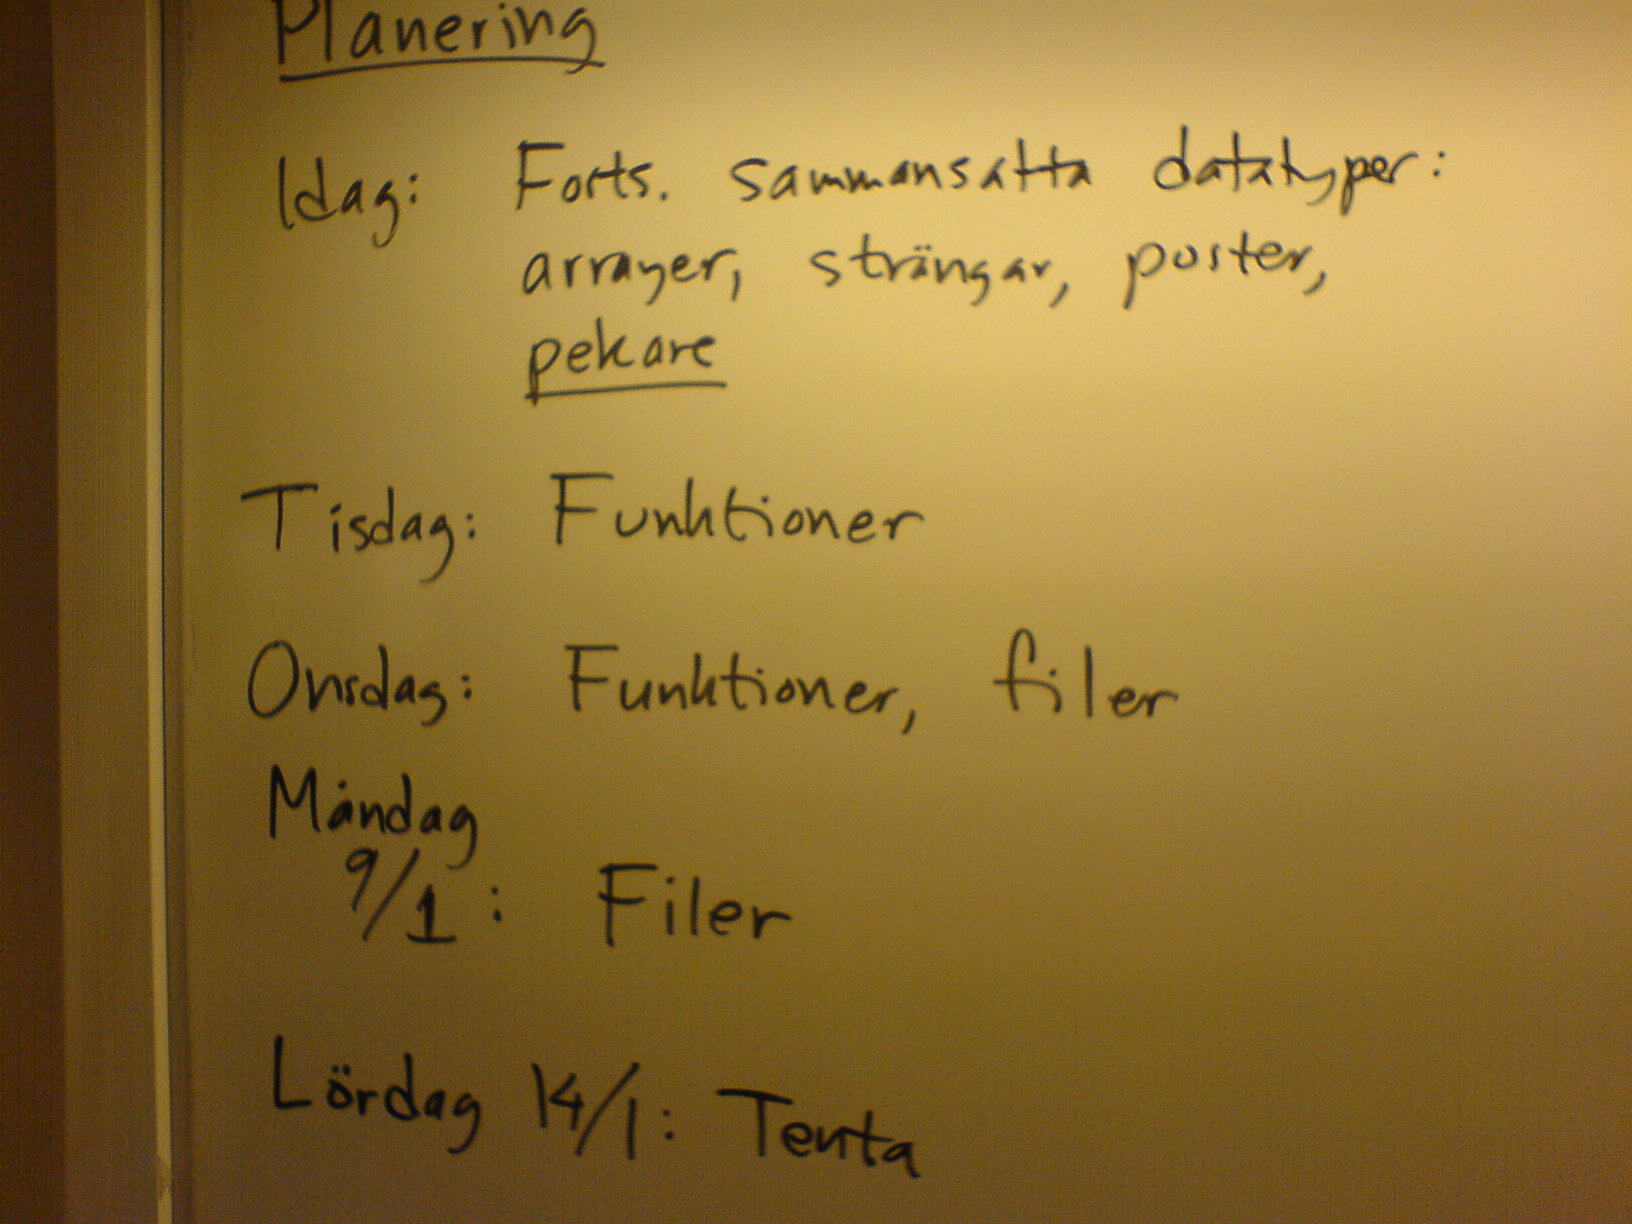 Planering
Idag: Forts. sammansatta datatyper:
arrayer, strängar, poster,
pekare
Tisdag: Funktioner
Onsdag: Funktioner, filer
Måndag
9/1: Filer
Lördag 14/1: Tenta